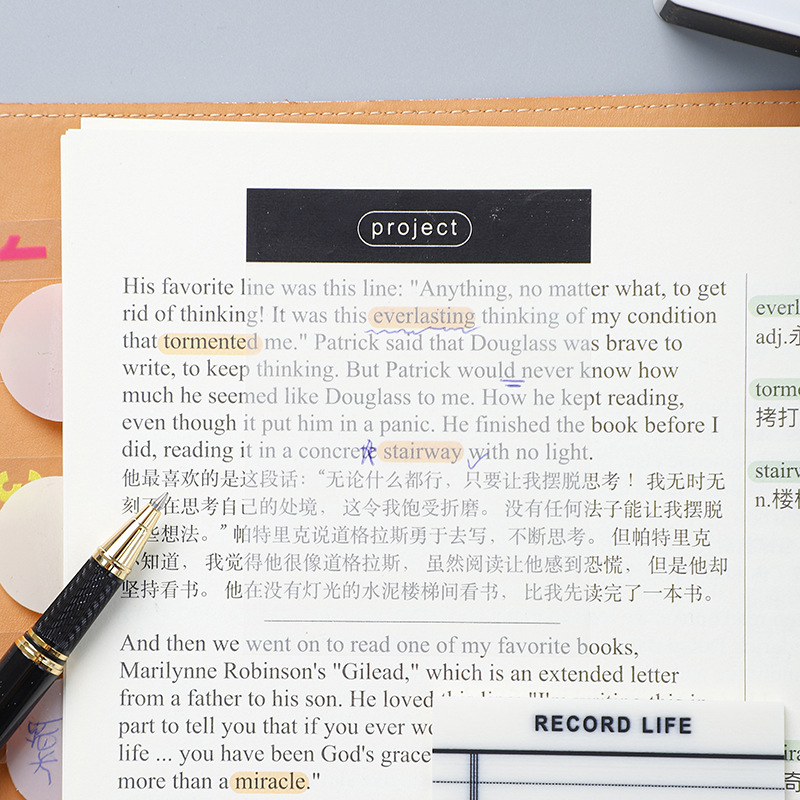 project
His favorite line was this line: "Anything, no matter what, to get
rid of thinking! It was this everlasting thinking of my condition
that tormented me." Patrick said that Douglass was brave to
write, to keep thinking. But Patrick would never know how
much he seemed like Douglass to me. How he kept reading,
even though it put him in a panic. He finished the book before I
did, reading it in a concrete stairway with no light.
他最喜欢的是这段话：“无论什么都行，只要让我摆脱思考！ 我无时无
刻不在思考自己的处境， 这令我饱受折磨。 没有任何法子能让我摆脱
些想法。” 帕特里克说道格拉斯勇于去写，不断思考。 但帕特里克
知道， 我觉得他很像道格拉斯， 虽然阅读让他感到恐慌， 但是他却
坚持看书。 他在没有灯光的水泥楼梯间看书， 比我先读完了一本书。
And then we went on to read one of my favorite books,
Marilynne Robinson's "Gilead," which is an extended letter
from a father to his son. He loved this line: "I'm writing this in
part to tell you that if you ever
life ... you have been God's grace
more than a miracle."
adj.永
拷打
n.楼梯
奇
RECORD LIFE